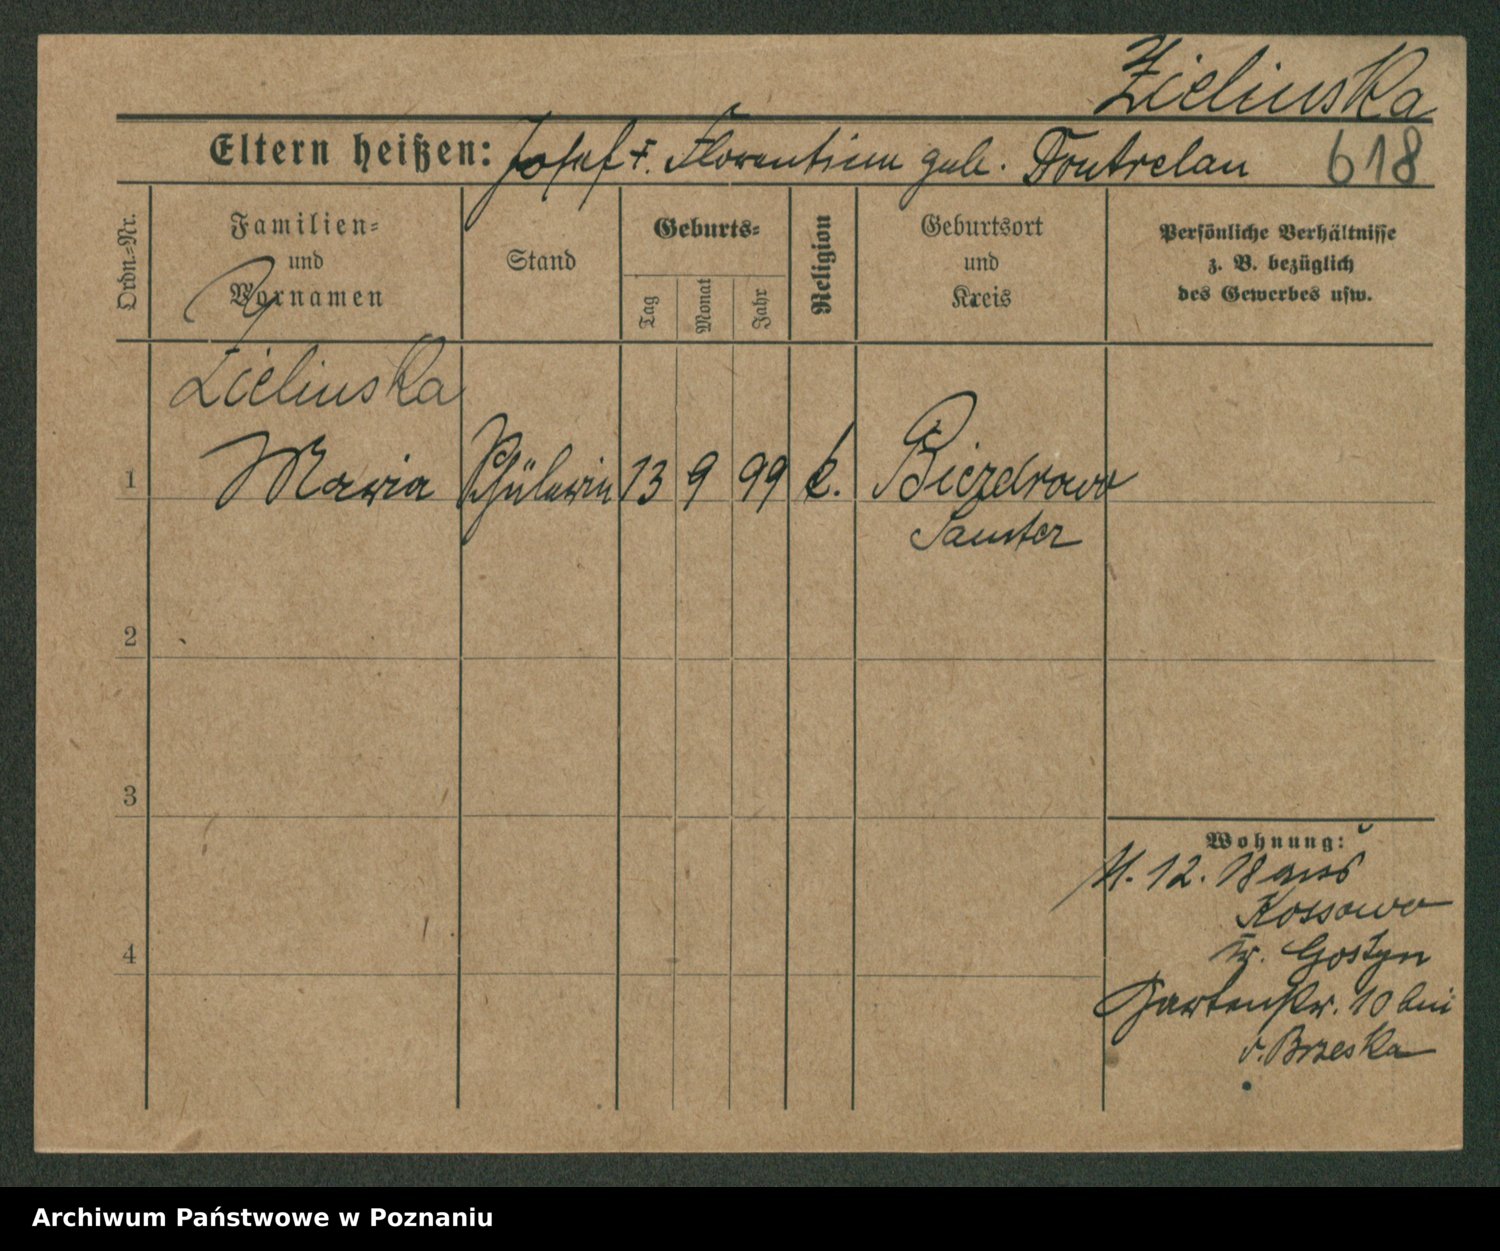 Zielinska
Eltern heißen: Josef †. Florentine geb. Doutrelau 618
Ordn.-Nr.
Familien-
und
Vornamen
Stand
Geburts-
Tag
Monat
Jahr
Religion
Geburtsort
und
Kreis
Persönliche Verhältnisse
z. B. bezüglich
des Gewerbes usw.
Zielinska
1 Maria Schülerin 13 9 99 k. Biezdrowo
Samter
2
3
4
Wohnung:
11. 12. 18 aus
Kossowo
Kr. Gostyn
Gartenstr. 10 bei
v. Brzeska
Archiwum Państwowe w Poznaniu